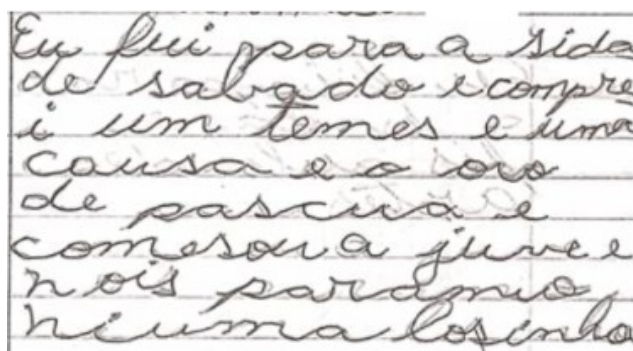 Eu fui para a sida
de sabado e compre
i um temes e uma
causa e o ovo
de pascua e
comesou a juve e
nois paramo
niuma losinha